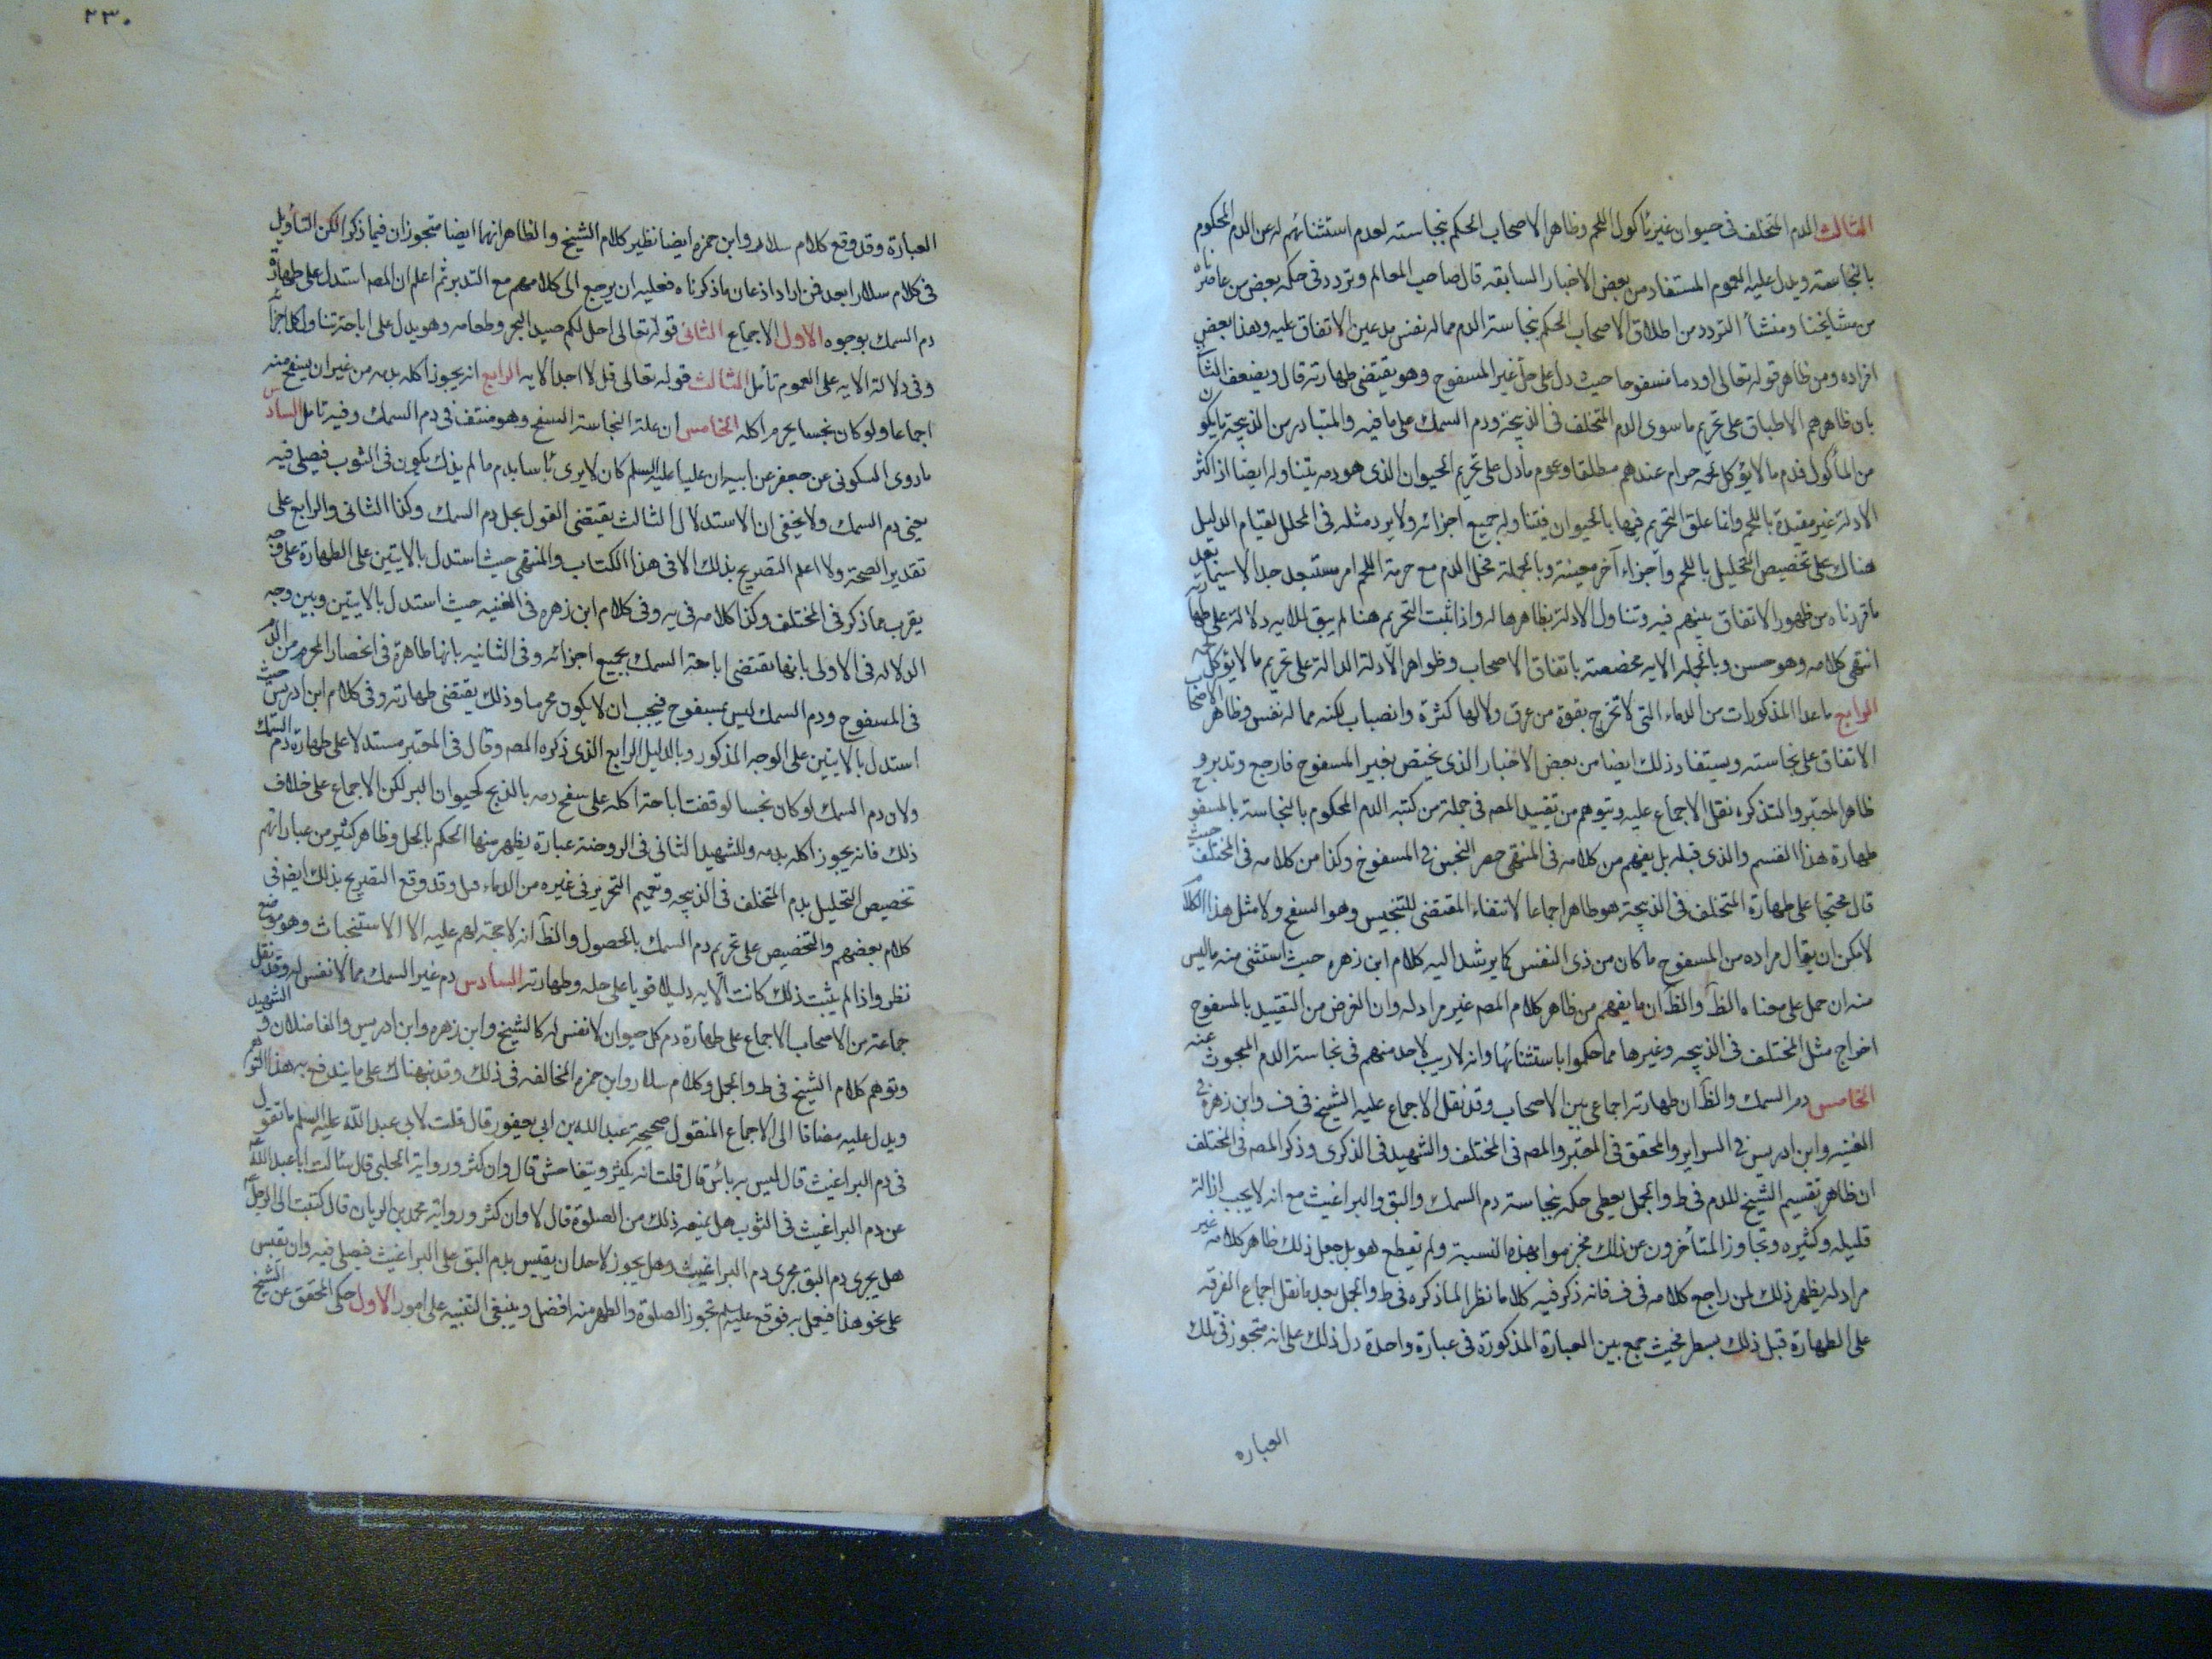 الثالث الدم المتخلف فى حيوان غير مأكول اللحم وظاهر الاصحاب الحكم بنجاسته لعدم استثنائهم له عن الدم المحكوم
بالنجاسة ويدل عليه العموم المستفاد من بعض الاخبار السابقه قال صاحب المعالم وتردد فى حكمه بعض من عاصرناه
من مشايخنا ومنشأ التردد من اطلاق الاصحاب الحكم بنجاسة الدم مما له نفس مدعين الاتفاق عليه وهذا بعض
افراده ومن ظاهر قوله تعالى او دما مسفوحا حيث دل على حل غير المسفوح وهو يقتضى طهارته قال ويضعف الثانى
بان ظاهرهم الاطباق على تحريم ما سوى الدم المتخلف فى الذبيحة ودم السمك على ما فيه والمتبادر من الذبيحة ما يكون
من المأكول فدم ما لا يؤكل لحمه حرام عندهم مطلقا وعموم ما دل على تحريم الحيوان الذى هو دمه يتناوله ايضا اذ اكثر
الادلة غير مقيدة باللحم وانما علق التحريم فيها بالحيوان فيتناول جميع اجزائه ولا يرد مثله فى المحلل لقيام الدليل
هناك على تخصيص التحليل باللحم واجزاء آخر معينة وبالجملة فحل الدم مع حرمة اللحم امر مستبعد جدا لا سيما بعد
ما قررناه من ظهور الاتفاق بينهم فيه وتناول الادلة بظاهرها له واذا ثبت التحريم هنا لم يبق للايه دلالة على طهارته
انتهى كلامه وهو حسن وبالجمله الايه مخصصة باتفاق الاصحاب وظواهر الادلة الدالة على تحريم ما لا يؤكل لحمه
الرابع ما عدا المذكورات من الدماء التى لا تخرج بقوة من عرق ولا لها كثرة وانصباب لكنه مما له نفس وظاهر الاصحاب
الاتفاق على نجاسته ويستفاد ذلك ايضا من بعض الاخبار الذى يختص بغير المسفوح فارجع وتدبر و
ظاهر المعتبر والتذكره نقل الاجماع عليه ويتوهم من تقييد المصم فى جملة من كتبه الدم المحكوم بالنجاسة بالمسفوح
طهارة هذا القسم والذى قبله بل يفهم من كلامه فى المنتهى حصر النجس فى المسفوح وكذا من كلامه فى المختلف حيث
قال محتجا على طهارة المتخلف فى الذبيحة هو طاهر اجماعا لانتفاء المقتضى للتنجيس وهو السفح ولا مثل هذا الكلام
لامكن ان يقال مراده من المسفوح ما كان من ذى النفس كما يرشد اليه كلام ابن زهره حيث استثنى منه ما ليس
منه ان حمل على معناه الظ والظ ان ما يفهم من ظاهر كلام المصم غير مراد له وان الغرض من التقييد بالمسفوح
اخراج مثل المختلف فى الذبيحه وغيرها مما حكموا باستثنائها وانه لا ريب لاحد منهم فى نجاسة الدم المبحوث عنه
الخامس دم السمك والظ ان طهارته اجماعى بين الاصحاب وقد نقل الاجماع عليه الشيخ فى ف وابن زهره فى
الغنيه وابن ادريس فى السراير والمحقق فى المعتبر والمصم فى المختلف والشهيد فى الذكرى وذكر المصم فى المختلف
ان ظاهر تقسيم الشيخ للدم فى ط والجمل يعطى حكمه بنجاسة دم السمك والبق والبراغيث مع انه لا يجب ازالة
قليله وكثيره وتجاوز المتأخرون عن ذلك فجزموا بهذه النسبة ولم يقطع هو بل جعل ذلك ظاهر كلامه غير
مراد له يظهر ذلك لمن راجع كلامه فى ف فانه ذكر فيه كلاما نظر الما ذكره فى ط والجمل بعد ما نقل اجماع الفرقه
على الطهارة قبل ذلك بسطر فحيث جمع بين العبارة المذكورة فى عبارة واحدة دل ذلك على انه متجوز فى تلك
العباره
٢٣٠
العبارة وقد وقع كلام سلار وابن حمزه ايضا نظير كلام الشيخ والظاهر انهما ايضا متجوزان فيما ذكر الكن التأويل
فى كلام سلار ابعد فمن اراد اذعان ما ذكرناه فعليه ان يرجع الى كلامهم مع التدبر ثم اعلم ان المصم استدل على طهارة
دم السمك بوجوه الاول الاجماع الثانى قوله تعالى احل لكم صيد البحر وطعامه وهو يدل على اباحة تناول كل اجزائه
وفى دلالة الايه على العموم تأمل الثالث قوله تعالى قل لا اجد الايه الرابع انه يجوز اكله بدمه من غير ان يسفح منه
اجماعا ولو كان نجسا يحرم اكله الخامس ان علة النجاسة السفح وهو منتف فى دم السمك وفيه تامل السادس
ما روى السكونى عن جعفر عن ابيه ان عليا عليه السلم كان لا يرى بأسا بدم ما لم يذك يكون فى الثوب فيصلى فيه
يعنى دم السمك ولا يخفى ان الاستدلال الثالث يقتضى القول بحل دم السمك وكذا الثانى والرابع على
تقدير الصحة ولا اعلم التصريح بذلك الا فى هذا الكتاب والمنتهى حيث استدل بالايتين على الطهارة على وجه
يقرب ما ذكر فى المختلف وكذا كلامه فى يه وفى كلام ابن زهره فى الغنيه حيث استدل بالايتين وبين وجه
الدلاله فى الاولى بانها يقتضى اباحة السمك بجميع اجزائه وفى الثانيه بانها طاهرة فى انحصار المحرم من الدم
فى المسفوح ودم السمك ليس بمسفوح فيجب ان لا يكون محرما وذلك يقتضى طهارته وفى كلام ابن ادريس حيث
استدل بالايتين على الوجه المذكور وبالدليل الرابع الذى ذكره المصم وقال فى المعتبر مستدلا على طهارة دم السمك
ولان دم السمك لو كان نجسا لوقفت اباحة اكله على سفح دمه بالذبح كحيوان البر لكن الاجماع على خلاف
ذلك فانه يجوز اكله بدمه وللشهيد الثانى فى الروضة عبارة يظهر منها الحكم بالحل وظاهر كثير من عباراتهم
تخصيص التحليل بدم المتخلف فى الذبيحه وتعميم التحريم فى غيره من الدماء بل وقد وقع التصريح بذلك ايضا فى
كلام بعضهم والتخصيص على تحريم دم السمك بالحصول والظ انه لا حجة لهم عليه الا الاستخباث وهو موضع
نظر واذا لم يثبت ذلك كانت الايه دليلا قويا على حله وطهارته السادس دم غير السمك مما لا نفس له وقد نقل
جماعة من الاصحاب الاجماع على طهارة دم كل حيوان لا نفس له كالشيخ وابن زهره وابن ادريس والفاضلان والشهيد
وتوهم كلام الشيخ فى ط والجمل وكلام سلار وابن حمزه المخالفه فى ذلك وقد نبهناك على ما يندفع به هذا التوهم
ويدل عليه مضافا الى الاجماع المنقول صحيحة عبد الله بن ابى يعفور قال قلت لابى عبد الله عليه السلم ما تقول
فى دم البراغيث قال ليس به بأس قال قلت انه يكثر ويتفاحش قال وان كثر ورواية الحلبى قال سئالت ابا عبد الله
عن دم البراغيث فى الثوب هل يمنعه ذلك من الصلوة قال لا وان كثر ورواية محمد بن الريان قال كتبت الى الرجل
هل يجرى دم البق مجرى دم البراغيث وهل يجوز لاحد ان يقيس بدم البق على البراغيث فيصلى فيه وان يقيس
على نحو هذا فيعمل به فوقع عليه السلم تجوز الصلوة والطهر منه افضل وينبغى التنبيه على امور الاول حكى المحقق عن الشيخ